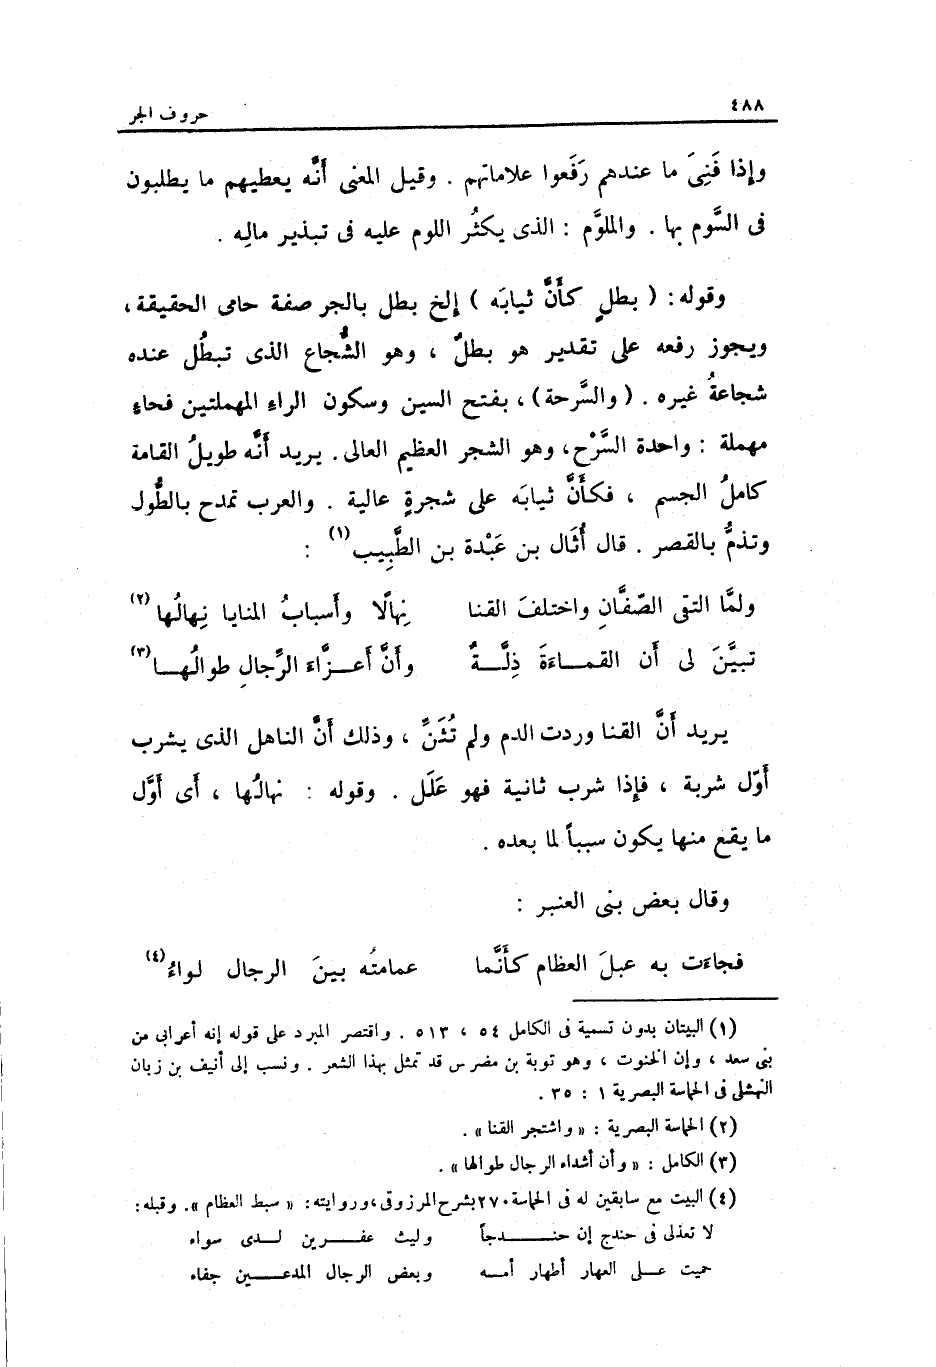 ٤٨٨
حروف الجر
وإذا فَنِىَ ما عندهم رَفَعوا علاماتهم . وقيل المعنى أَنَّه يعطيهم ما يطلبون
فى السَّوم بها . والملوَّم : الذى يكثُر اللوم عليه فى تبذير مالِه .
وقوله : ( بطلٍ كأَنَّ ثيابَه ) إلخ بطل بالجر صفة حامى الحقيقة ،
ويجوز رفعه على تقدير هو بطلٌ ، وهو الشُّجاع الذى تبطُل عنده
شجاعةُ غيره . ( والسَّرحة ) ، بفتح السين وسكون الراءِ المهملتين فحاءٍ
مهملة : واحدة السَّرْح ، وهو الشجر العظيم العالى . يريد أَنَّه طويلُ القامة
كاملُ الجسم ، فكأَنَّ ثيابَه على شجرةٍ عالية . والعرب تمدح بالطُّول
وتذمُّ بالقصر . قال أُثَال بن عَبْدة بن الطَّبِيب(١) :
ولمَّا التقى الصّفَّانِ واختلفَ القنا نِهالًا وأَسبابُ المنايا نِهالُها(٢)
تبيَّنَ لى أن القمــاءَةَ ذِلَّــةٌ وأَنَّ أَعــزَّاءَ الرِّجالِ طوالُهــا(٣)
يريد أَنَّ القنا وردت الدم ولم تُثَنِّ ، وذلك أَنَّ الناهل الذى يشرب
أَوّل شربة ، فإذا شرب ثانية فهو عَلَل . وقوله : نهالُها ، أَى أَوَّل
ما يقع منها يكون سبباً لما بعده .
وقال بعض بنى العنبر :
فجاءَت به عبلَ العظام كأَنَّما عمامتُه بينَ الرجال لواءُ(٤)
(١) البيتان بدون تسمية فى الكامل ٥٤ ، ٥١٣ . واقتصر المبرد على قوله إنه أعرابى من
بنى سعد ، وإن الخنوت ، وهو توبة بن مضرس قد تمثل بهذا الشعر . ونسب إلى أنيف بن زبان
النهشلى فى الحماسة البصرية ١ : ٣٥ .
(٢) الحماسة البصرية : « واشتجر القنا » .
(٣) الكامل : « وأن أشداء الرجال طوالها » .
(٤) البيت مع سابقين له فى الحماسة ٢٧٠ بشرح المرزوقى ، وروايته : « سبط العظام » . وقبله :
لا تعذلى فى حندج إن حنــــدجاً وليث عفـــرين لــدى سواء
حميت عــلى العهار أطهار أمــه وبعض الرجال المدعــــين جفاء